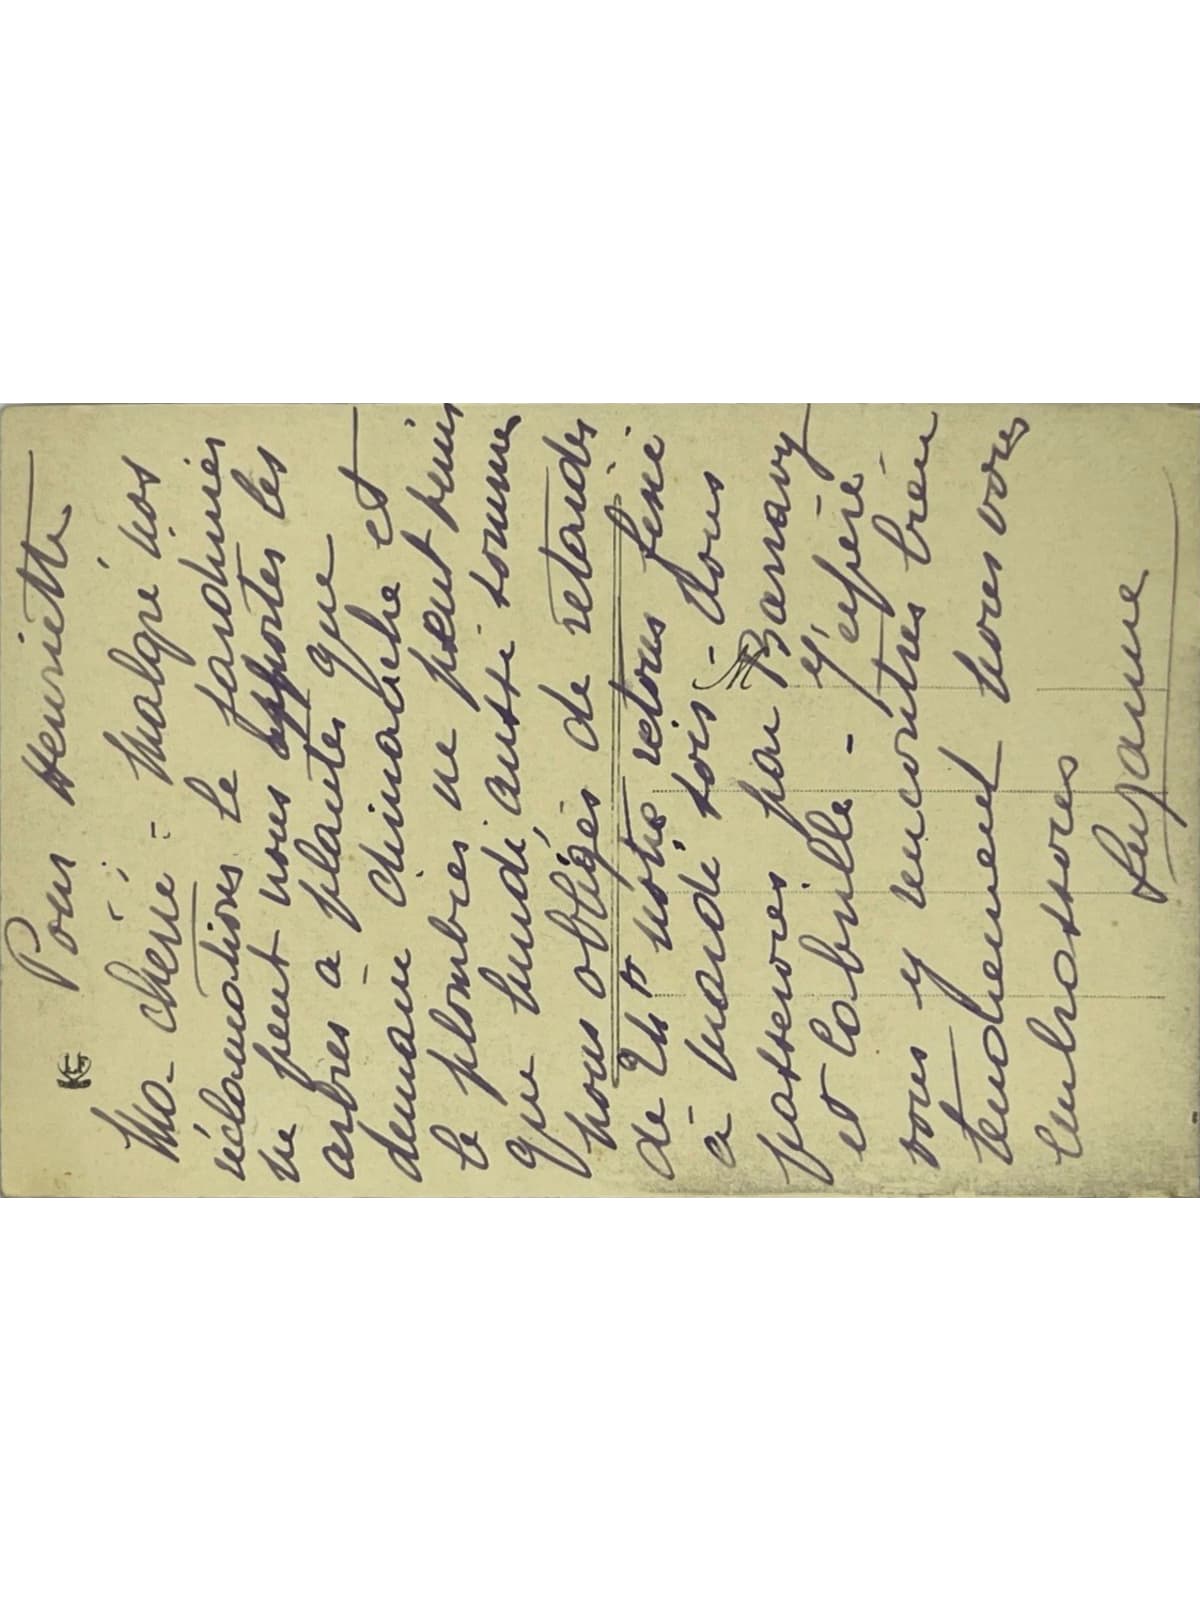 Pour Henriette
Ma chérie - Malgré nos
réclamations le jardinier
ne peut nous apporter les
arbres à planter que
demain dimanche et
le plombier ne peut venir
que lundi, aussi sommes
nous obligés de retarder
de 24 h notre retour fixé
à mardi soir - Nous
M
passerons par Barnavy
et Cabrille - J'espère
vous y rencontrer bien
tendrement nous vous
embrassons
Suzanne